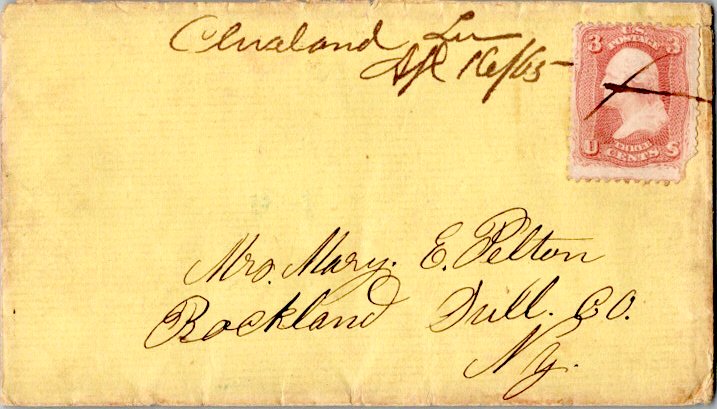 Cleveland Ten
Apl 16/65
3 U.S. 3
POSTAGE
U THREE S
CENTS
Mrs. Mary. E. Pelton
Rockland Sull. CO.
Ny.